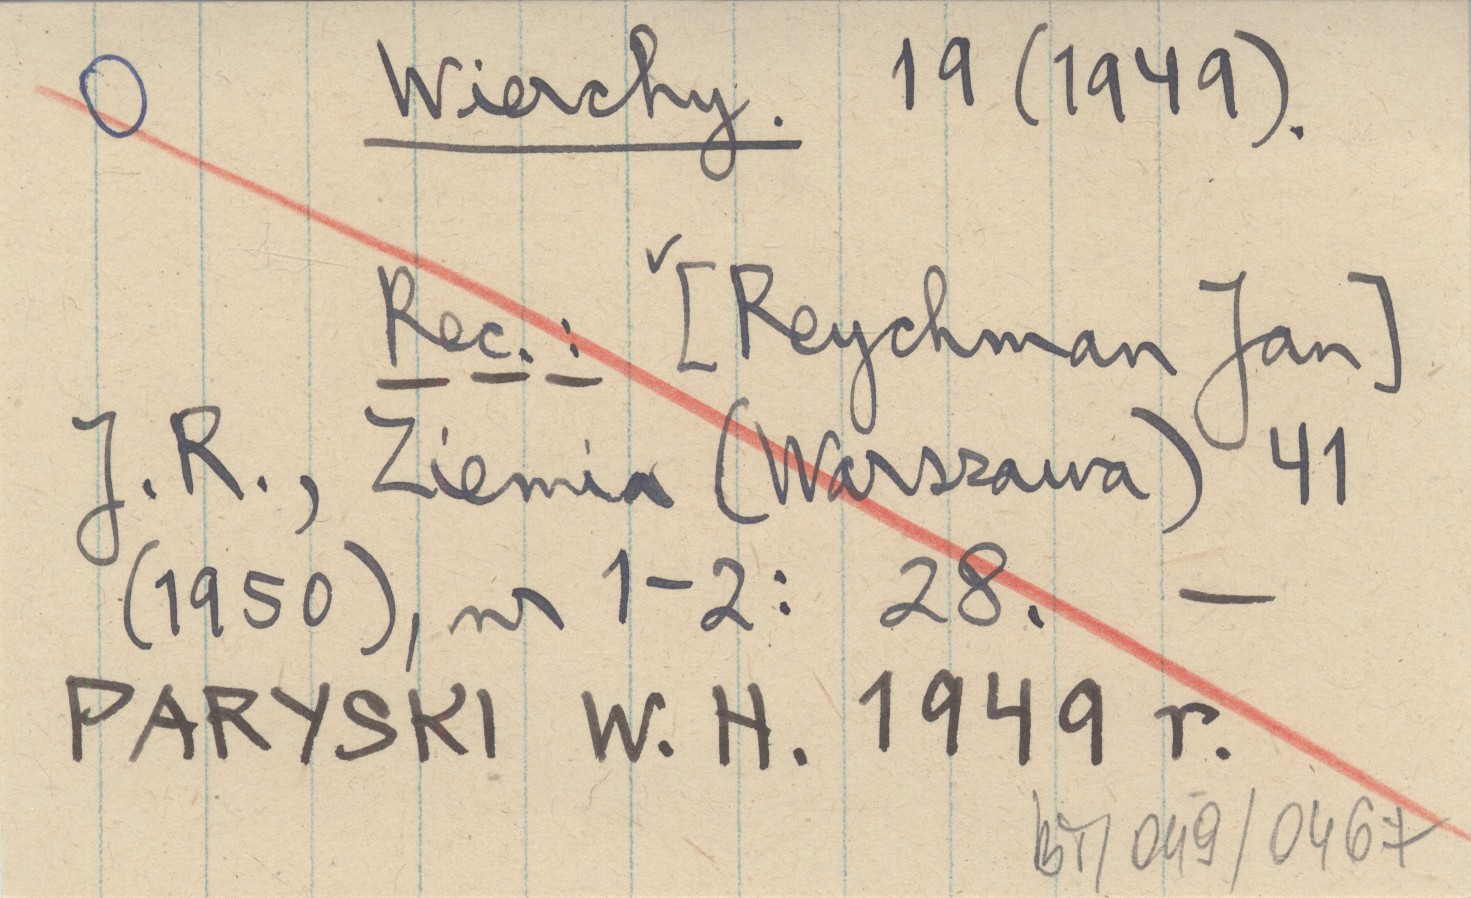 O Wierchy. 19 (1949).
Rec.: ✓ [Reychman Jan]
J.R., Ziemia (Warszawa) 41
(1950), nr 1-2: 28. —
PARYSKI W. H. 1949 r.
BT/049/0467